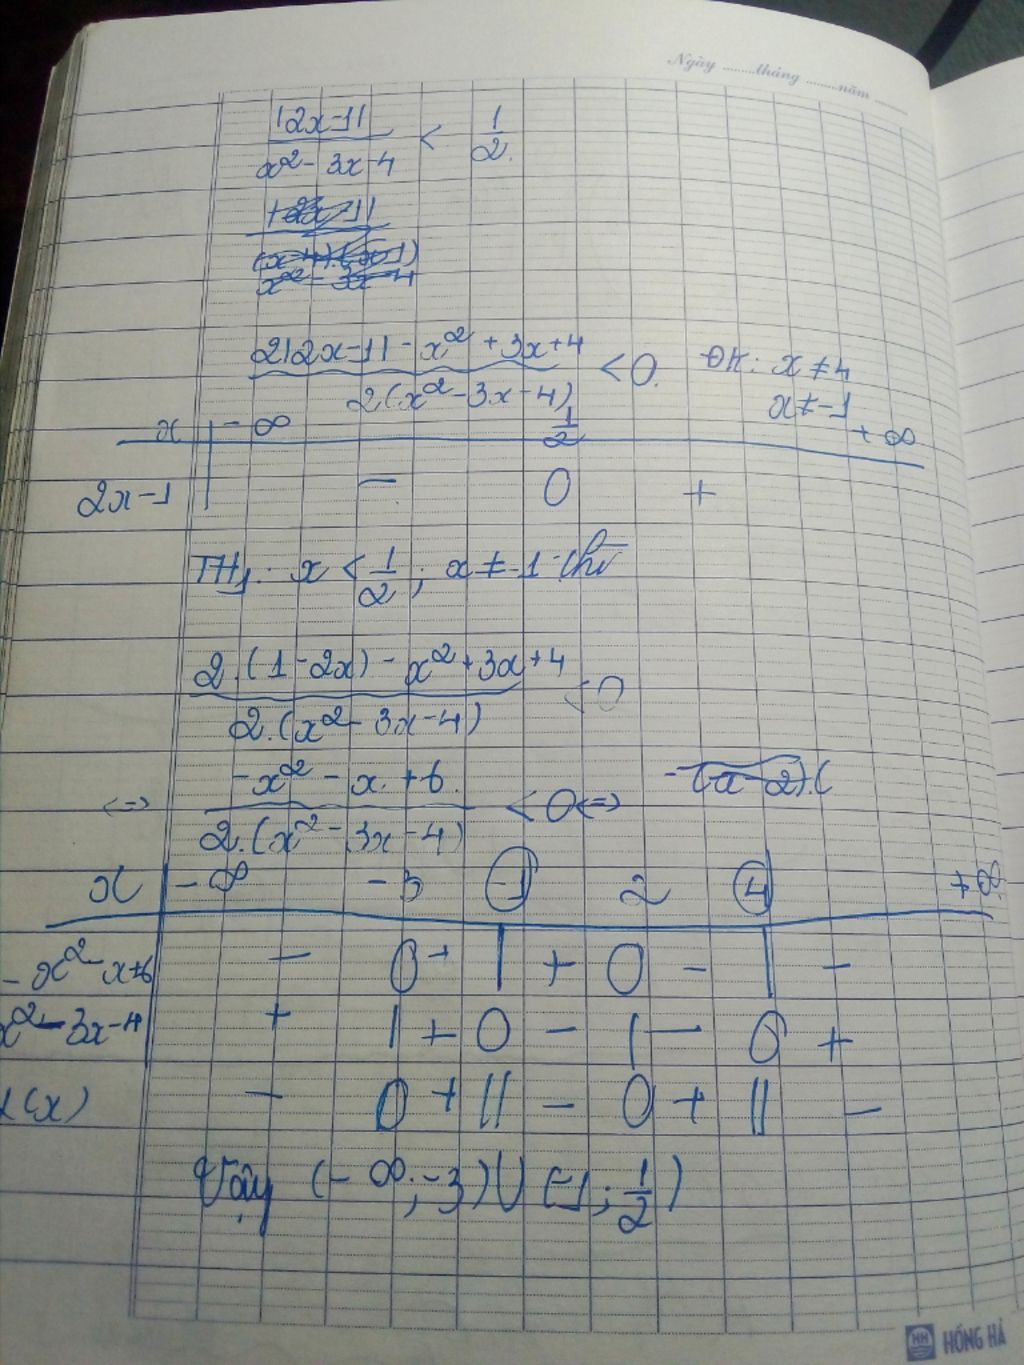 Ngày ........tháng ........năm ........
|2x-1| / x² - 3x - 4 < 1/2
2|2x-1| - x² + 3x + 4 / 2(x² - 3x - 4) < 0. ĐK: x ≠ 4
x ≠ -1
x -∞ 1/2 +∞
2x-1 - 0 +
TH1: x < 1/2; x ≠ -1 thì
2.(1-2x) - x² + 3x + 4 / 2.(x² - 3x - 4) < 0
<=> -x² - x + 6 / 2.(x² - 3x - 4) < 0 <=>
x -∞ -3 -1 2 4 +∞
-x² - x + 6 - 0 + | + 0 - | -
x² - 3x - 4 + | + 0 - | - 0 +
(x) - 0 + || - 0 + || -
Vậy (-∞; -3) ∪ (-1; 1/2)
HH HỒNG HÀ